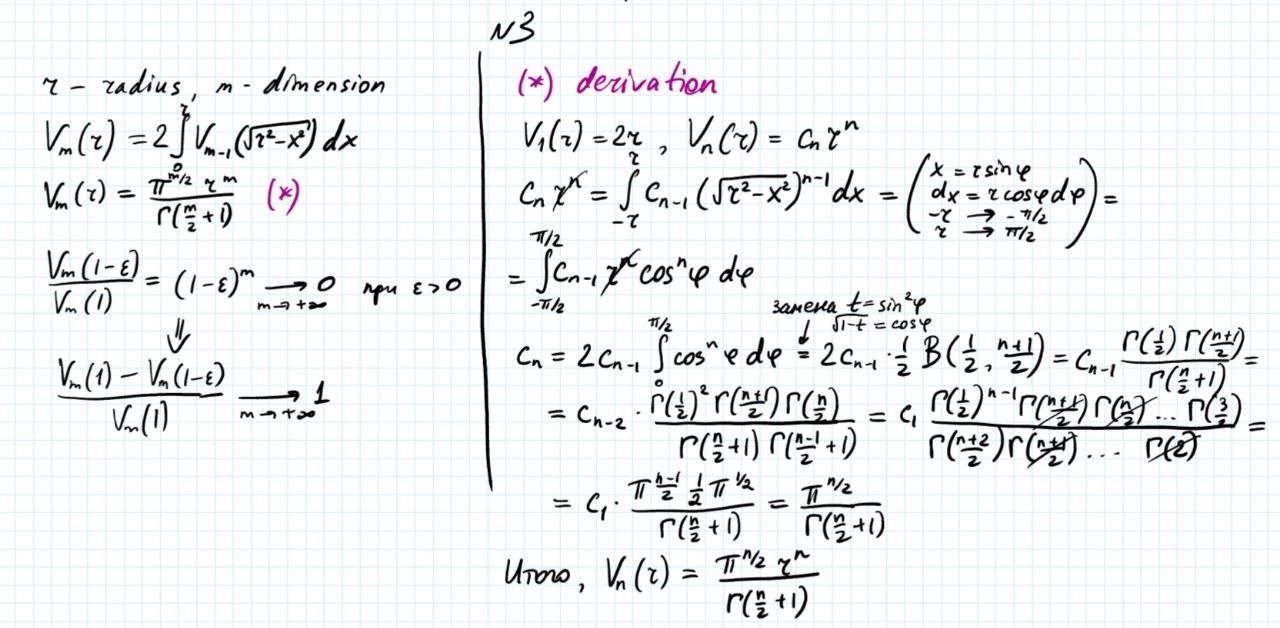 N3
r - radius, m - dimension
V_m(r) = 2 ∫_0^r V_{m-1}(√(r²-x²)) dx
V_m(r) = π^{m/2} r^m / Γ(m/2 + 1) (*)
V_m(1-ε) / V_m(1) = (1-ε)^m → 0 при ε>0
m→+∞
⇓
(V_m(1) - V_m(1-ε)) / V_m(1) → 1
m→+∞
(*) derivation
V_1(r) = 2r, V_n(r) = c_n r^n
c_n r^n = ∫_{-r}^{r} c_{n-1} (√(r²-x²))^{n-1} dx = ( x = r sinφ
dx = r cosφ dφ
-r → -π/2
r → π/2 ) =
= ∫_{-π/2}^{π/2} c_{n-1} r^n cos^n φ dφ
замена t = sin²φ
√(1-t) = cosφ
c_n = 2c_{n-1} ∫_0^{π/2} cos^n φ dφ = 2c_{n-1} · 1/2 B(1/2, (n+1)/2) = c_{n-1} Γ(1/2) Γ((n+1)/2) / Γ(n/2 + 1) =
= c_{n-2} · Γ(1/2)² Γ((n+1)/2) Γ(n/2) / (Γ(n/2 + 1) Γ((n-1)/2 + 1)) = c_1 Γ(1/2)^{n-1} Γ((n+1)/2) Γ(n/2) ... Γ(3/2) / (Γ((n+2)/2) Γ((n+1)/2) ... Γ(2)) =
= c_1 · π^{(n-1)/2} 1/2 π^{1/2} / Γ(n/2 + 1) = π^{n/2} / Γ(n/2 + 1)
Итого, V_n(r) = π^{n/2} r^n / Γ(n/2 + 1)